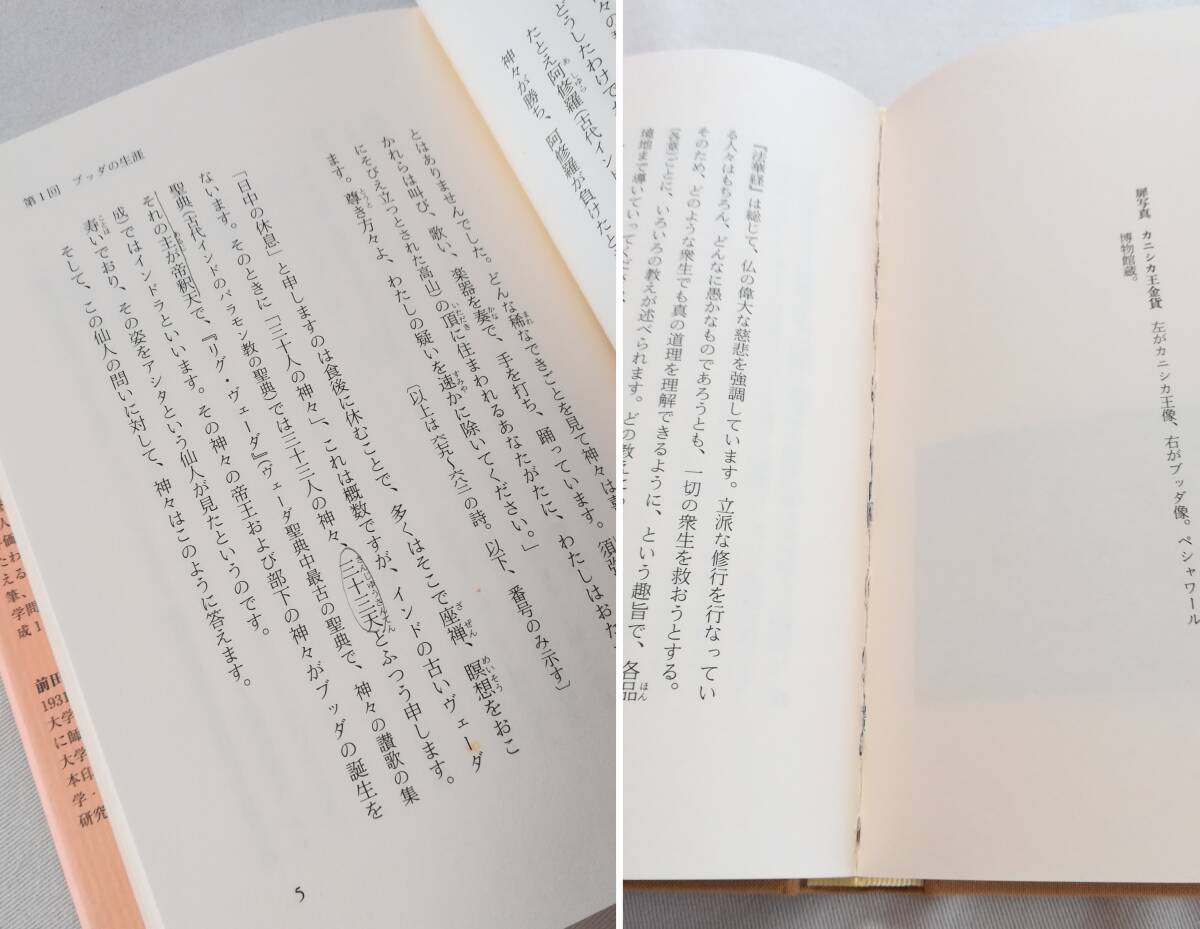 神々が勝ち、阿修羅が負けたと
たとえ阿修羅(古代イント
どうしたわけで
とはありませんでした。どんな稀なできごとを見て神々は喜
かれらは叫び、歌い、楽器を奏で、手を打ち、踊っています。須弥
にそびえ立つとされた高山)の頂に住まわれるあなたがたに、わたしはおた
ます。尊き方々よ、わたしの疑いを速かに除いてください。」
〔以上は六七九〜六八二の詩。以下、番号のみ示す〕
「日中の休息」と申しますのは食後に休むことで、多くはそこで座禅、瞑想をおこ
ないます。そのときに「三十人の神々」、これは概数ですが、インドの古いヴェーダ
聖典(古代インドのバラモン教の聖典)では三十三人の神々、三十三天とふつう申します。
それの主が帝釈天で、『リグ・ヴェーダ』(ヴェーダ聖典中最古の聖典で、神々の讃歌の集
成)ではインドラといいます。その神々の帝王および部下の神々がブッダの誕生を
寿いでおり、その姿をアシタという仙人が見たというのです。
そして、この仙人の問いに対して、神々はこのように答えます。
第1回 ブッダの生涯
5
前田
1931
大学
に師
大学
本印
学・
研究
扉写真 カニシカ王金貨 左がカニシカ王像、右がブッダ像。ペシャワール
博物館蔵。
『法華経』は総じて、仏の偉大な慈悲を強調しています。立派な修行を行なってい
る人々はもちろん、どんなに愚かなものであろうとも、一切の衆生を救おうとする。
そのため、どのような衆生でも真の道理を理解できるように、という趣旨で、各品
(各章)ごとに、いろいろの教えが述べられます。どの教えでも
境地まで導いていってくださる